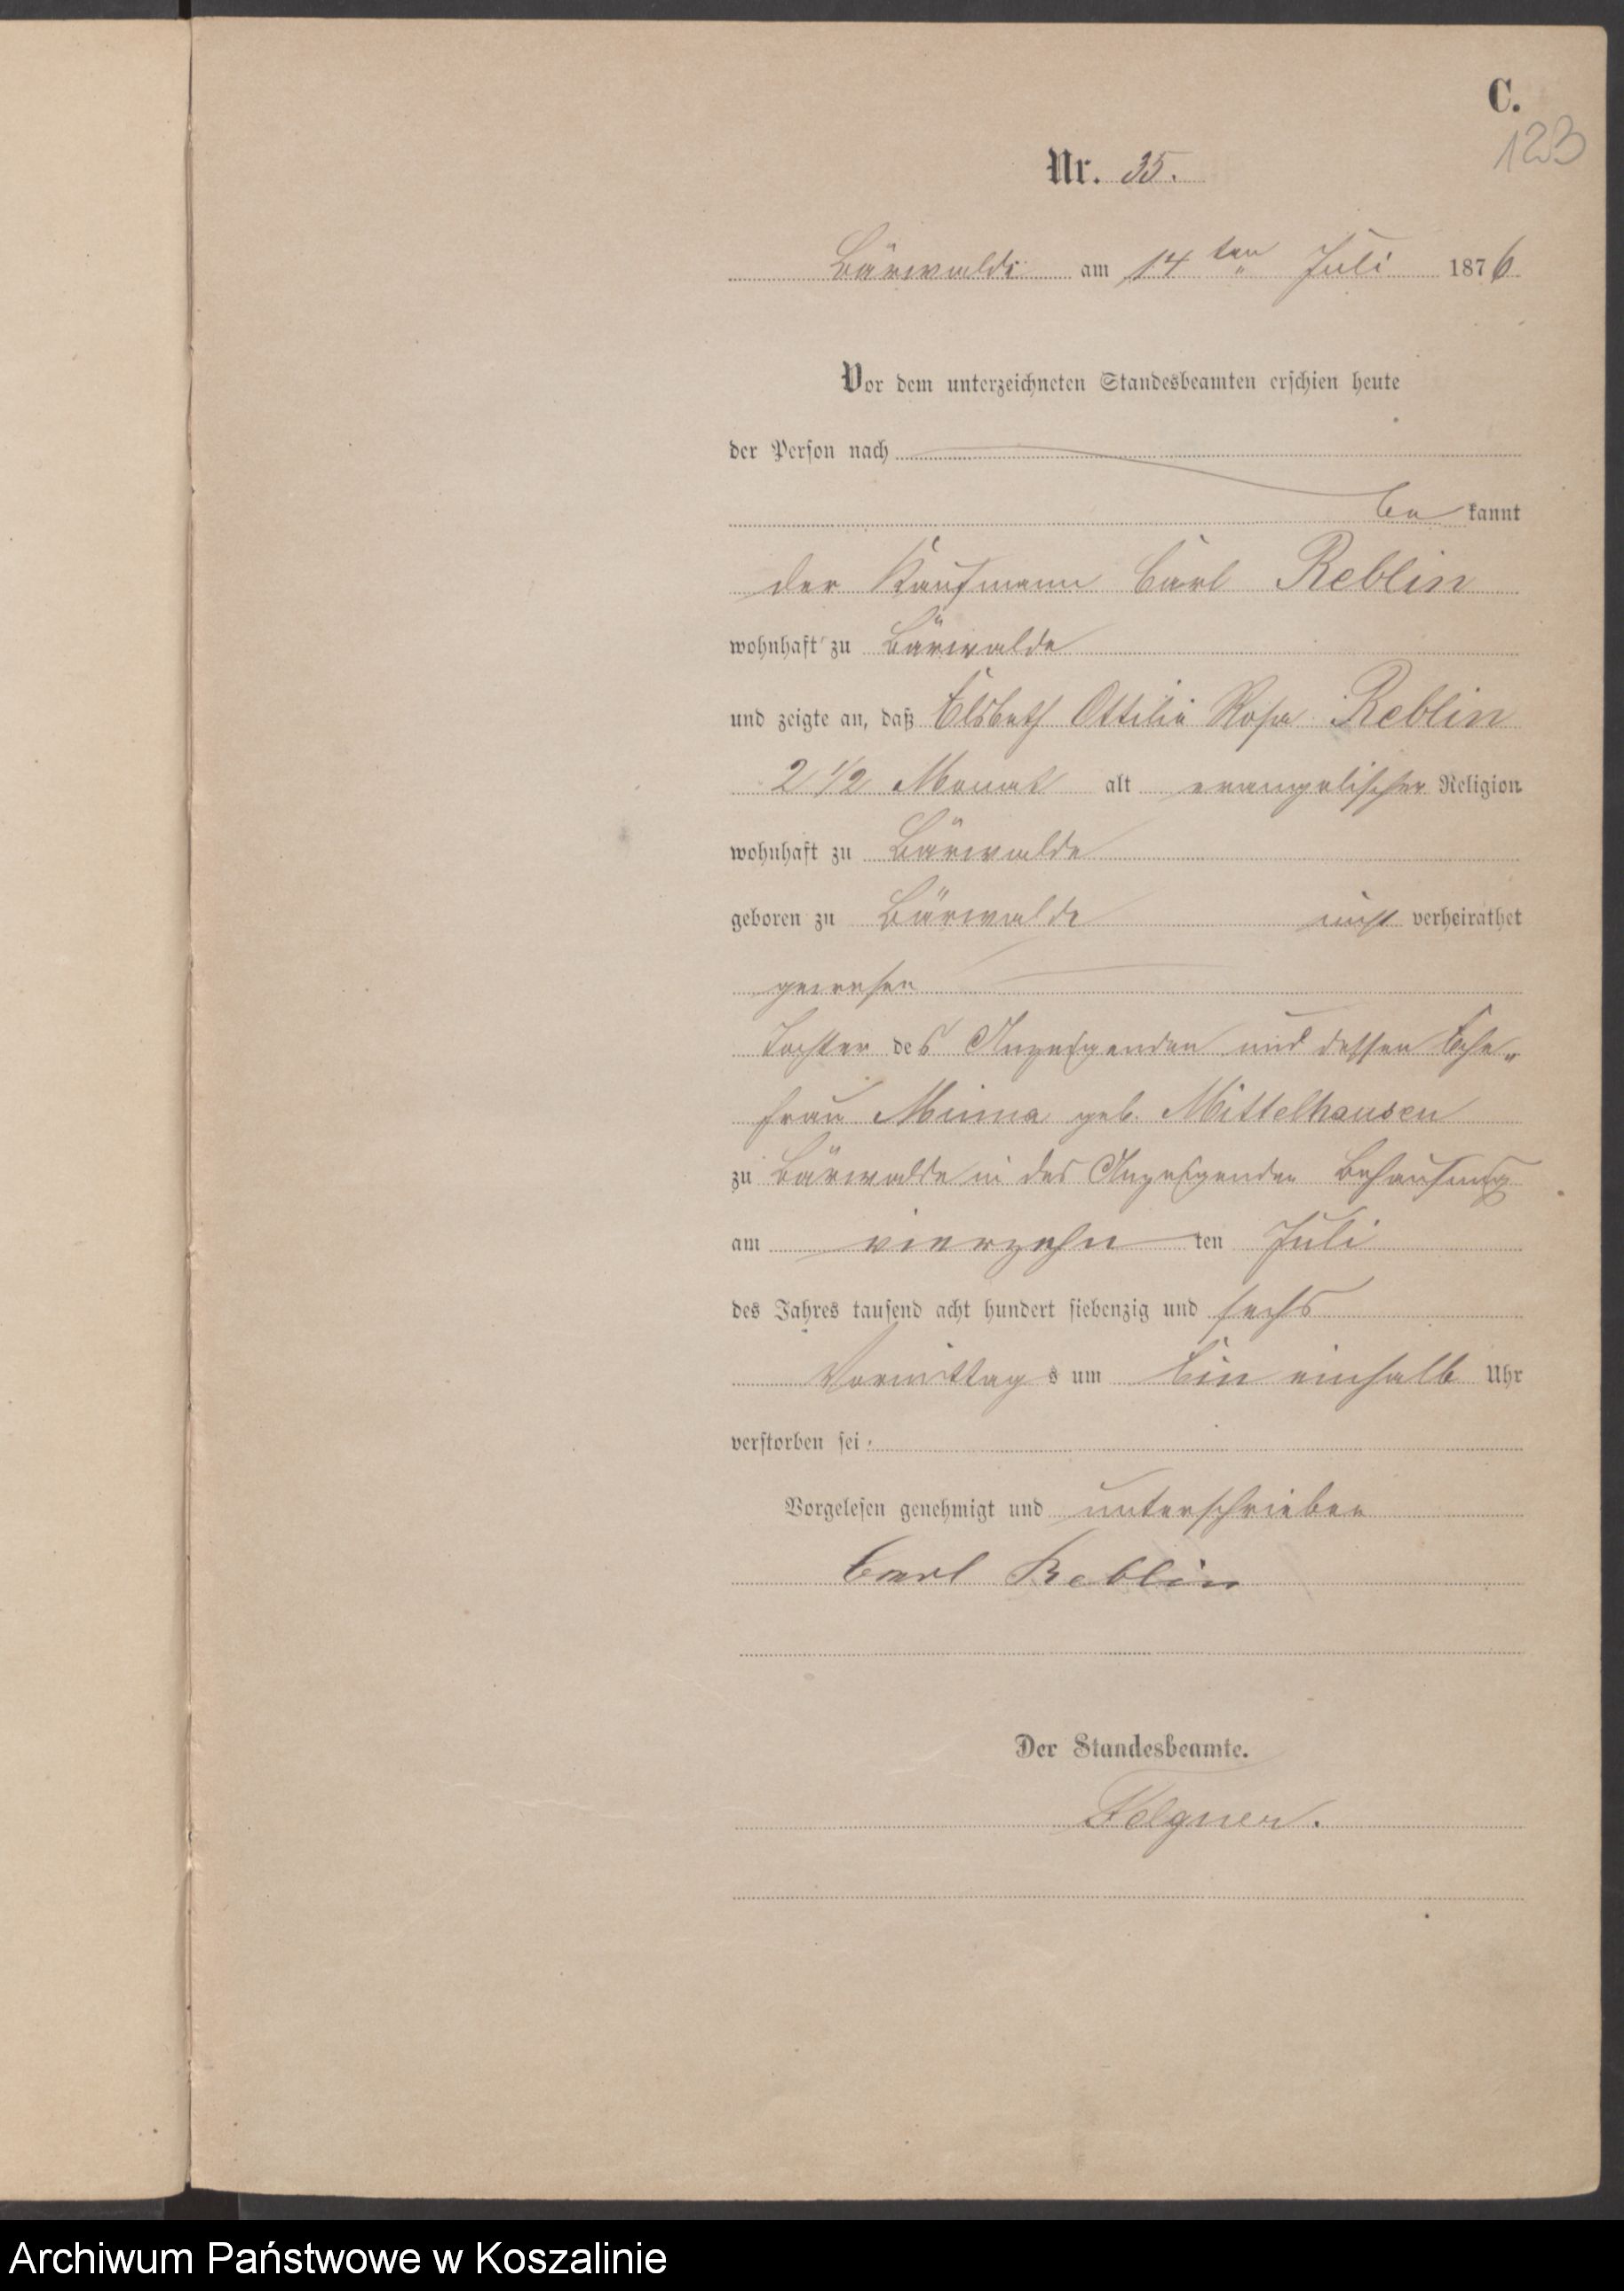 C.
123
Nr. 35.
Bärwalde am 14ten Juli 1876.
Vor dem unterzeichneten Standesbeamten erschien heute
der Person nach
be kannt
der Kaufmann Carl Reblin
wohnhaft zu Bärwalde
und zeigte an, daß Elsbeth Ottilie Rosa Reblin
2 1/2 Monat alt evangelischer Religion
wohnhaft zu Bärwalde
geboren zu Bärwalde nicht verheirathet
gewesen
Tochter des Anzeigenden und dessen Ehe„
frau Minna geb. Mittelhausen
zu Bärwalde in des Anzeigenden Behausung
am vierzehn ten Juli
des Jahres tausend acht hundert siebenzig und sechs
Vormittag s um Ein einhalb Uhr
verstorben sei.
Vorgelesen genehmigt und unterschrieben
Carl Reblin
Der Standesbeamte.
Felgner.
Archiwum Państwowe w Koszalinie